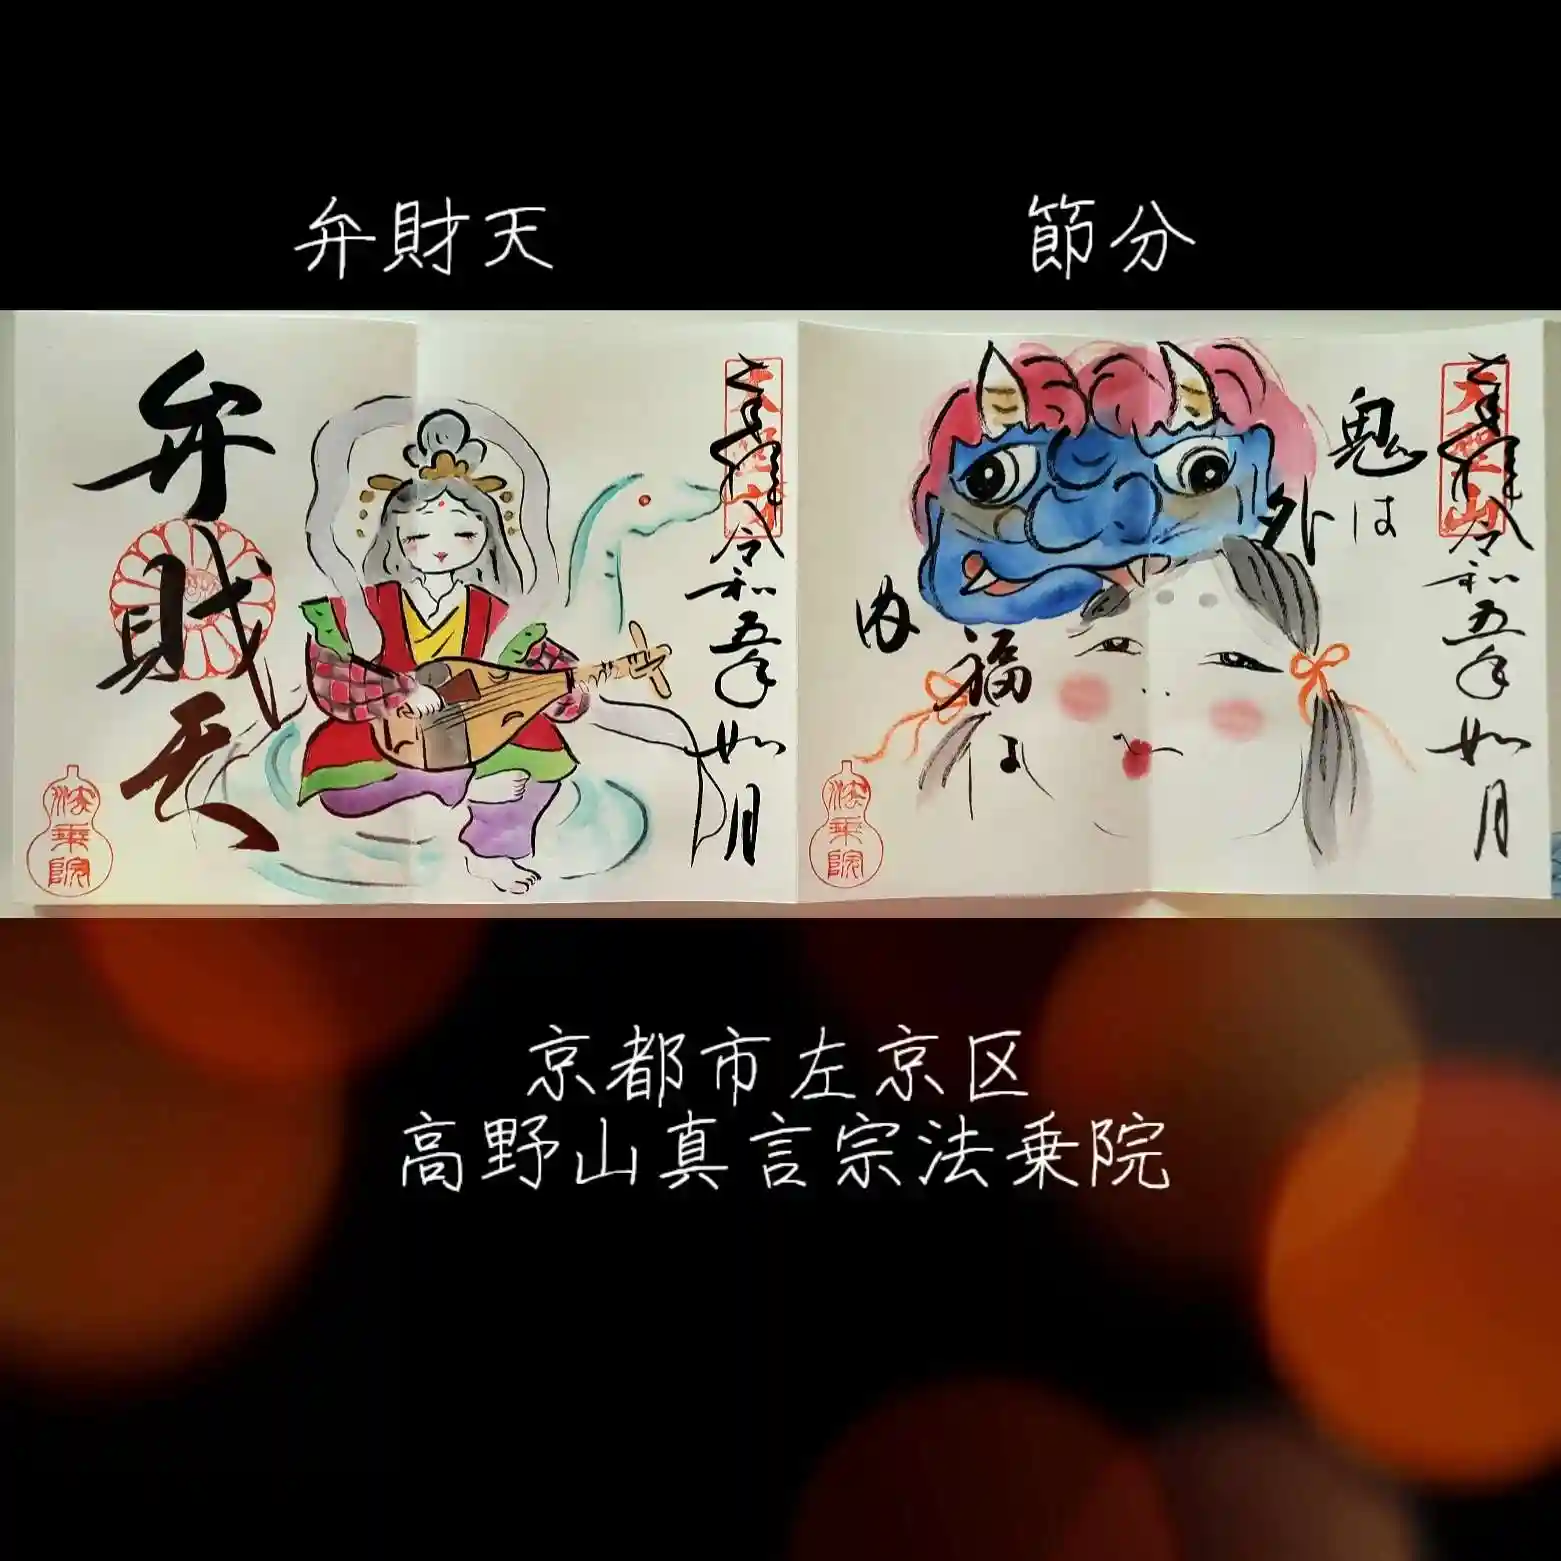 弁財天
節分
弁財天
奉拝
令和五年
如月
大聖山
法乗院
鬼は
外
福は
内
奉拝
令和五年
如月
大聖山
法乗院
京都市左京区
高野山真言宗法乗院